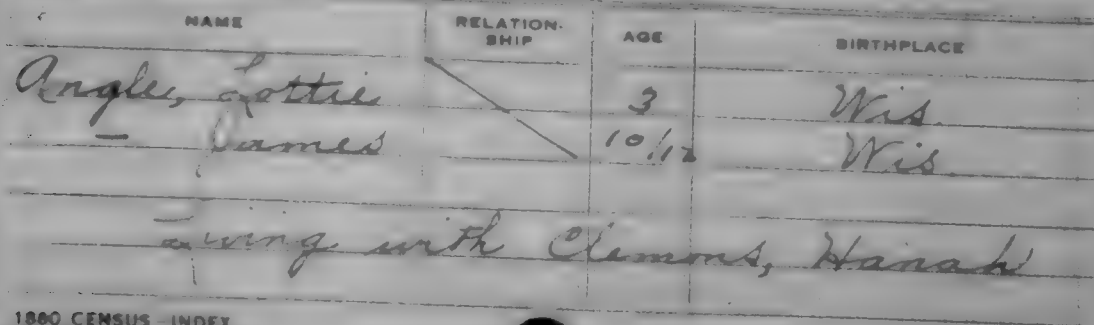 NAME RELATION-SHIP AGE BIRTHPLACE
Angle, Lottie 3 Wis.
— James 10/12 Wis.
Living with Clemons, Hanah
1880 CENSUS - INDEX